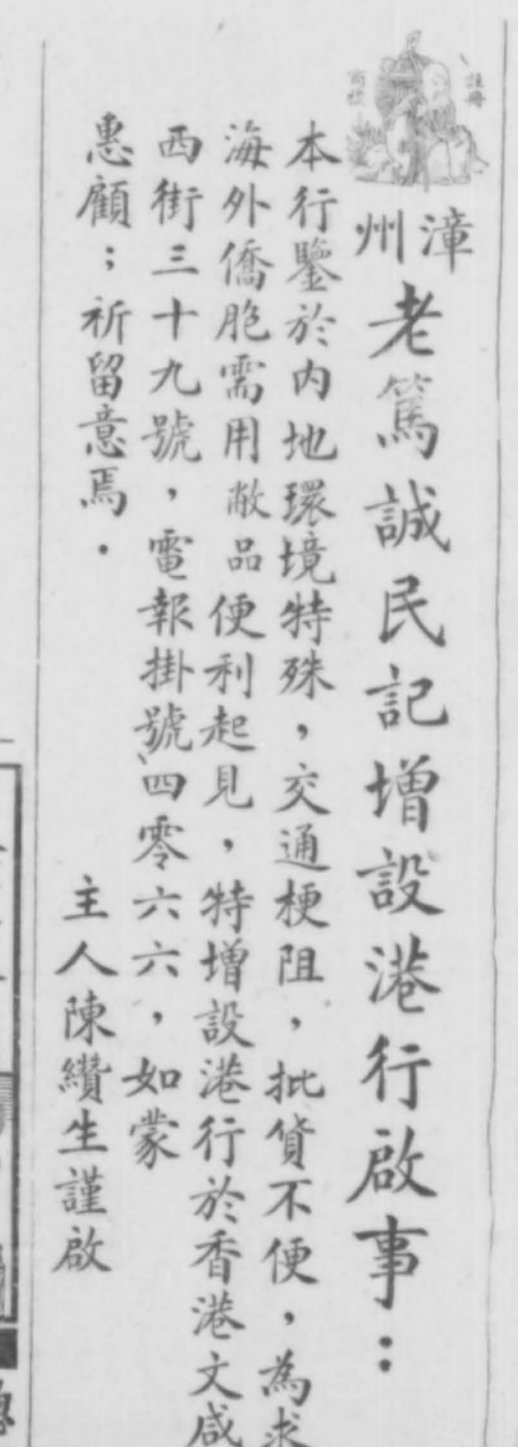 註冊
商標
漳州老篤誠民記增設港行啟事：
本行鑒於內地環境特殊，交通梗阻，批貨不便，為求
海外僑胞需用敝品便利起見，特增設港行於香港文咸
西街三十九號，電報掛號四零六六，如蒙
惠顧；祈留意焉．
主人陳纘生謹啟